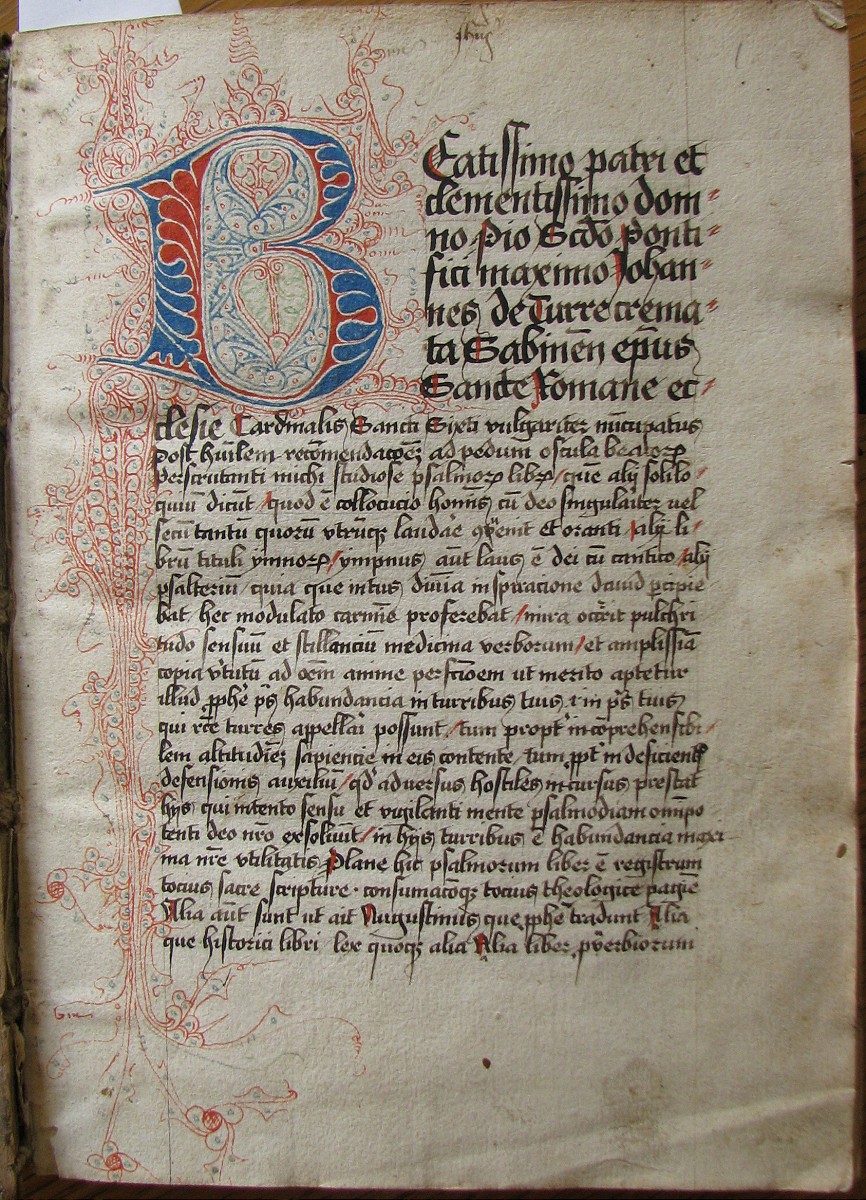 Beatissimo patri et
clementissimo dom⸗
no Pio Scdo Ponti⸗
fici maximo Johan⸗
nes de Turre crema⸗
ta Sabineñ ep̃us
Sancte Romane ec⸗
clesie Cardinalis Sancti Sixti vulgariter nũcupatus
Post hũilem recõmendacõeʒ ad pedum oscula beatorꝝ
Perscrutanti michi studiose psalmorꝝ librꝝ / quẽ alij solilo⸗
quiũ dicũt / quod ẽ collocucio homĩs cũ deo singularĩter vel
secũ tantũ quorũ vtrũqꝫ laudãe ꝯvẽnit et oranti / alij li⸗
brũ tituli ymnorꝝ / ympnus aũt laus ẽ dei cũ cantico / alij
psalteriũ / quia que intus diuĩa inspiracione dauid ꝑcipie
bat / hec modulato carmĩe proferebat / mira occ̃rit pulchri
tudo sensuũ et stillanciũ medicina verborum / et amplissiã
copia v̾tutũ ad oẽm anime perfcĩoem ut merito aptetur
illud ꝓphẽ ps̃ habundancia in turribus tuis ⁊ in ps̃ tuis
qui rc̃e turres appellari possunt / tum propt̾ incõprehensibi⸗
lem altitudĩeʒ sapiencie in eis contente / tum ꝓpt̾ indeficiens
defensionis auxiliũ / qd̾ aduersus hostiles incursus prestat
hijs qui intento sensu et vigilanti mente psalmodiam omĩpo
tenti deo nr̃o exsoluũt / in hijs turribus ẽ habundancia maxi
ma nr̃e vtilitatis Plane hic psalmorum liber ẽ registrum
tocius sacre scripture · consumacõqꝫ tocius theologice pagiẽ
Alia aũt sunt ut ait Augustinus que ꝓphẽ tradunt Alia
que historici libri lex quoqꝫ alia Alia liber ꝓv̾biorum